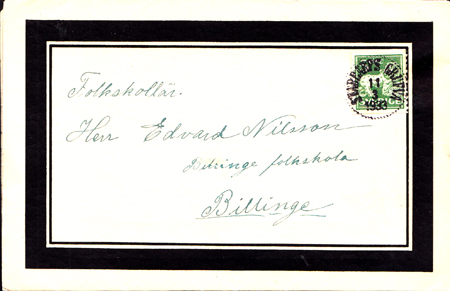 Folkskollär.
Herr Edvard Nilsson
Billinge folkskola
Billinge
11
3
1933